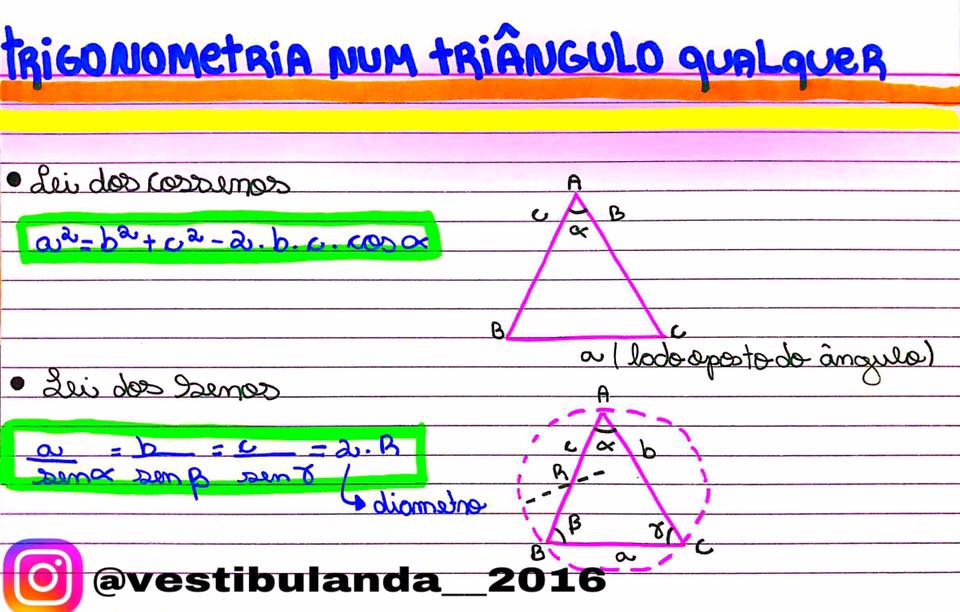 TRIGONOMETRIA NUM TRIÂNGULO QUALQUER
• Lei dos cossenos
a² = b² + c² - 2 . b . c . cos α
A
c B
α
B C
a (lado oposto do ângulo)
• Lei dos senos
a/sen α = b/sen β = c/sen γ = 2 . R
diametro
A
c α b
R
β γ
B a C
@vestibulanda__2016